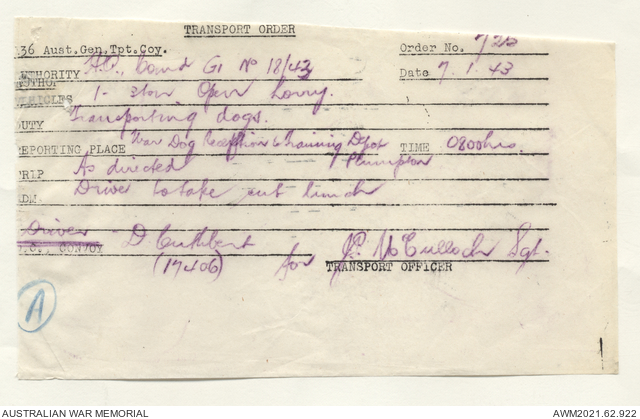 TRANSPORT ORDER
136 Aust.Gen.Tpt.Coy. Order No. 725
AUTHORITY A.Q., Comd G1 No 18/43 Date 7.1.43
VEHICLES 1 - 3ton Open Lorry.
DUTY Transporting dogs.
REPORTING PLACE War Dog Reception & Training Depot Plumpton TIME 0800hrs.
TRIP As directed
ADM. Driver to take cut lunch
Driver D. Cuthbert
CONVOY
(17406) for J.P. McCulloch Sgt.
TRANSPORT OFFICER
A
AUSTRALIAN WAR MEMORIAL AWM2021.62.922